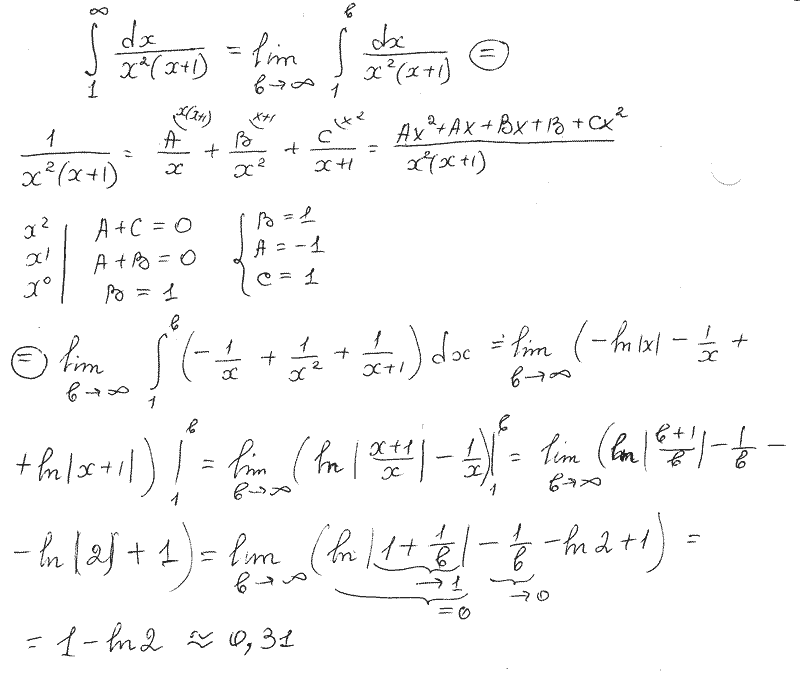 ∫₁^∞ dx/(x²(x+1)) = lim_{b→∞} ∫₁^b dx/(x²(x+1)) ⊜
1/(x²(x+1)) = A^{(x(x+1)}/x + B^{(x+1}/x² + C^{(x²}/(x+1) = (Ax²+Ax+Bx+B+Cx²)/(x²(x+1))
x² | A+C=0 { B=1
x¹ | A+B=0 A=-1
x⁰ | B=1 C=1
⊜ lim_{b→∞} ∫₁^b (-1/x + 1/x² + 1/(x+1)) dx = lim_{b→∞} (-ln|x| - 1/x +
+ln|x+1|) |₁^b = lim_{b→∞} (ln|(x+1)/x| - 1/x)|₁^b = lim_{b→∞} (ln|(b+1)/b| - 1/b -
-ln|2|+1) = lim_{b→∞} (ln|1+1/b| - 1/b - ln2+1) =
→1 →0
=0
= 1-ln2 ≈ 0,31